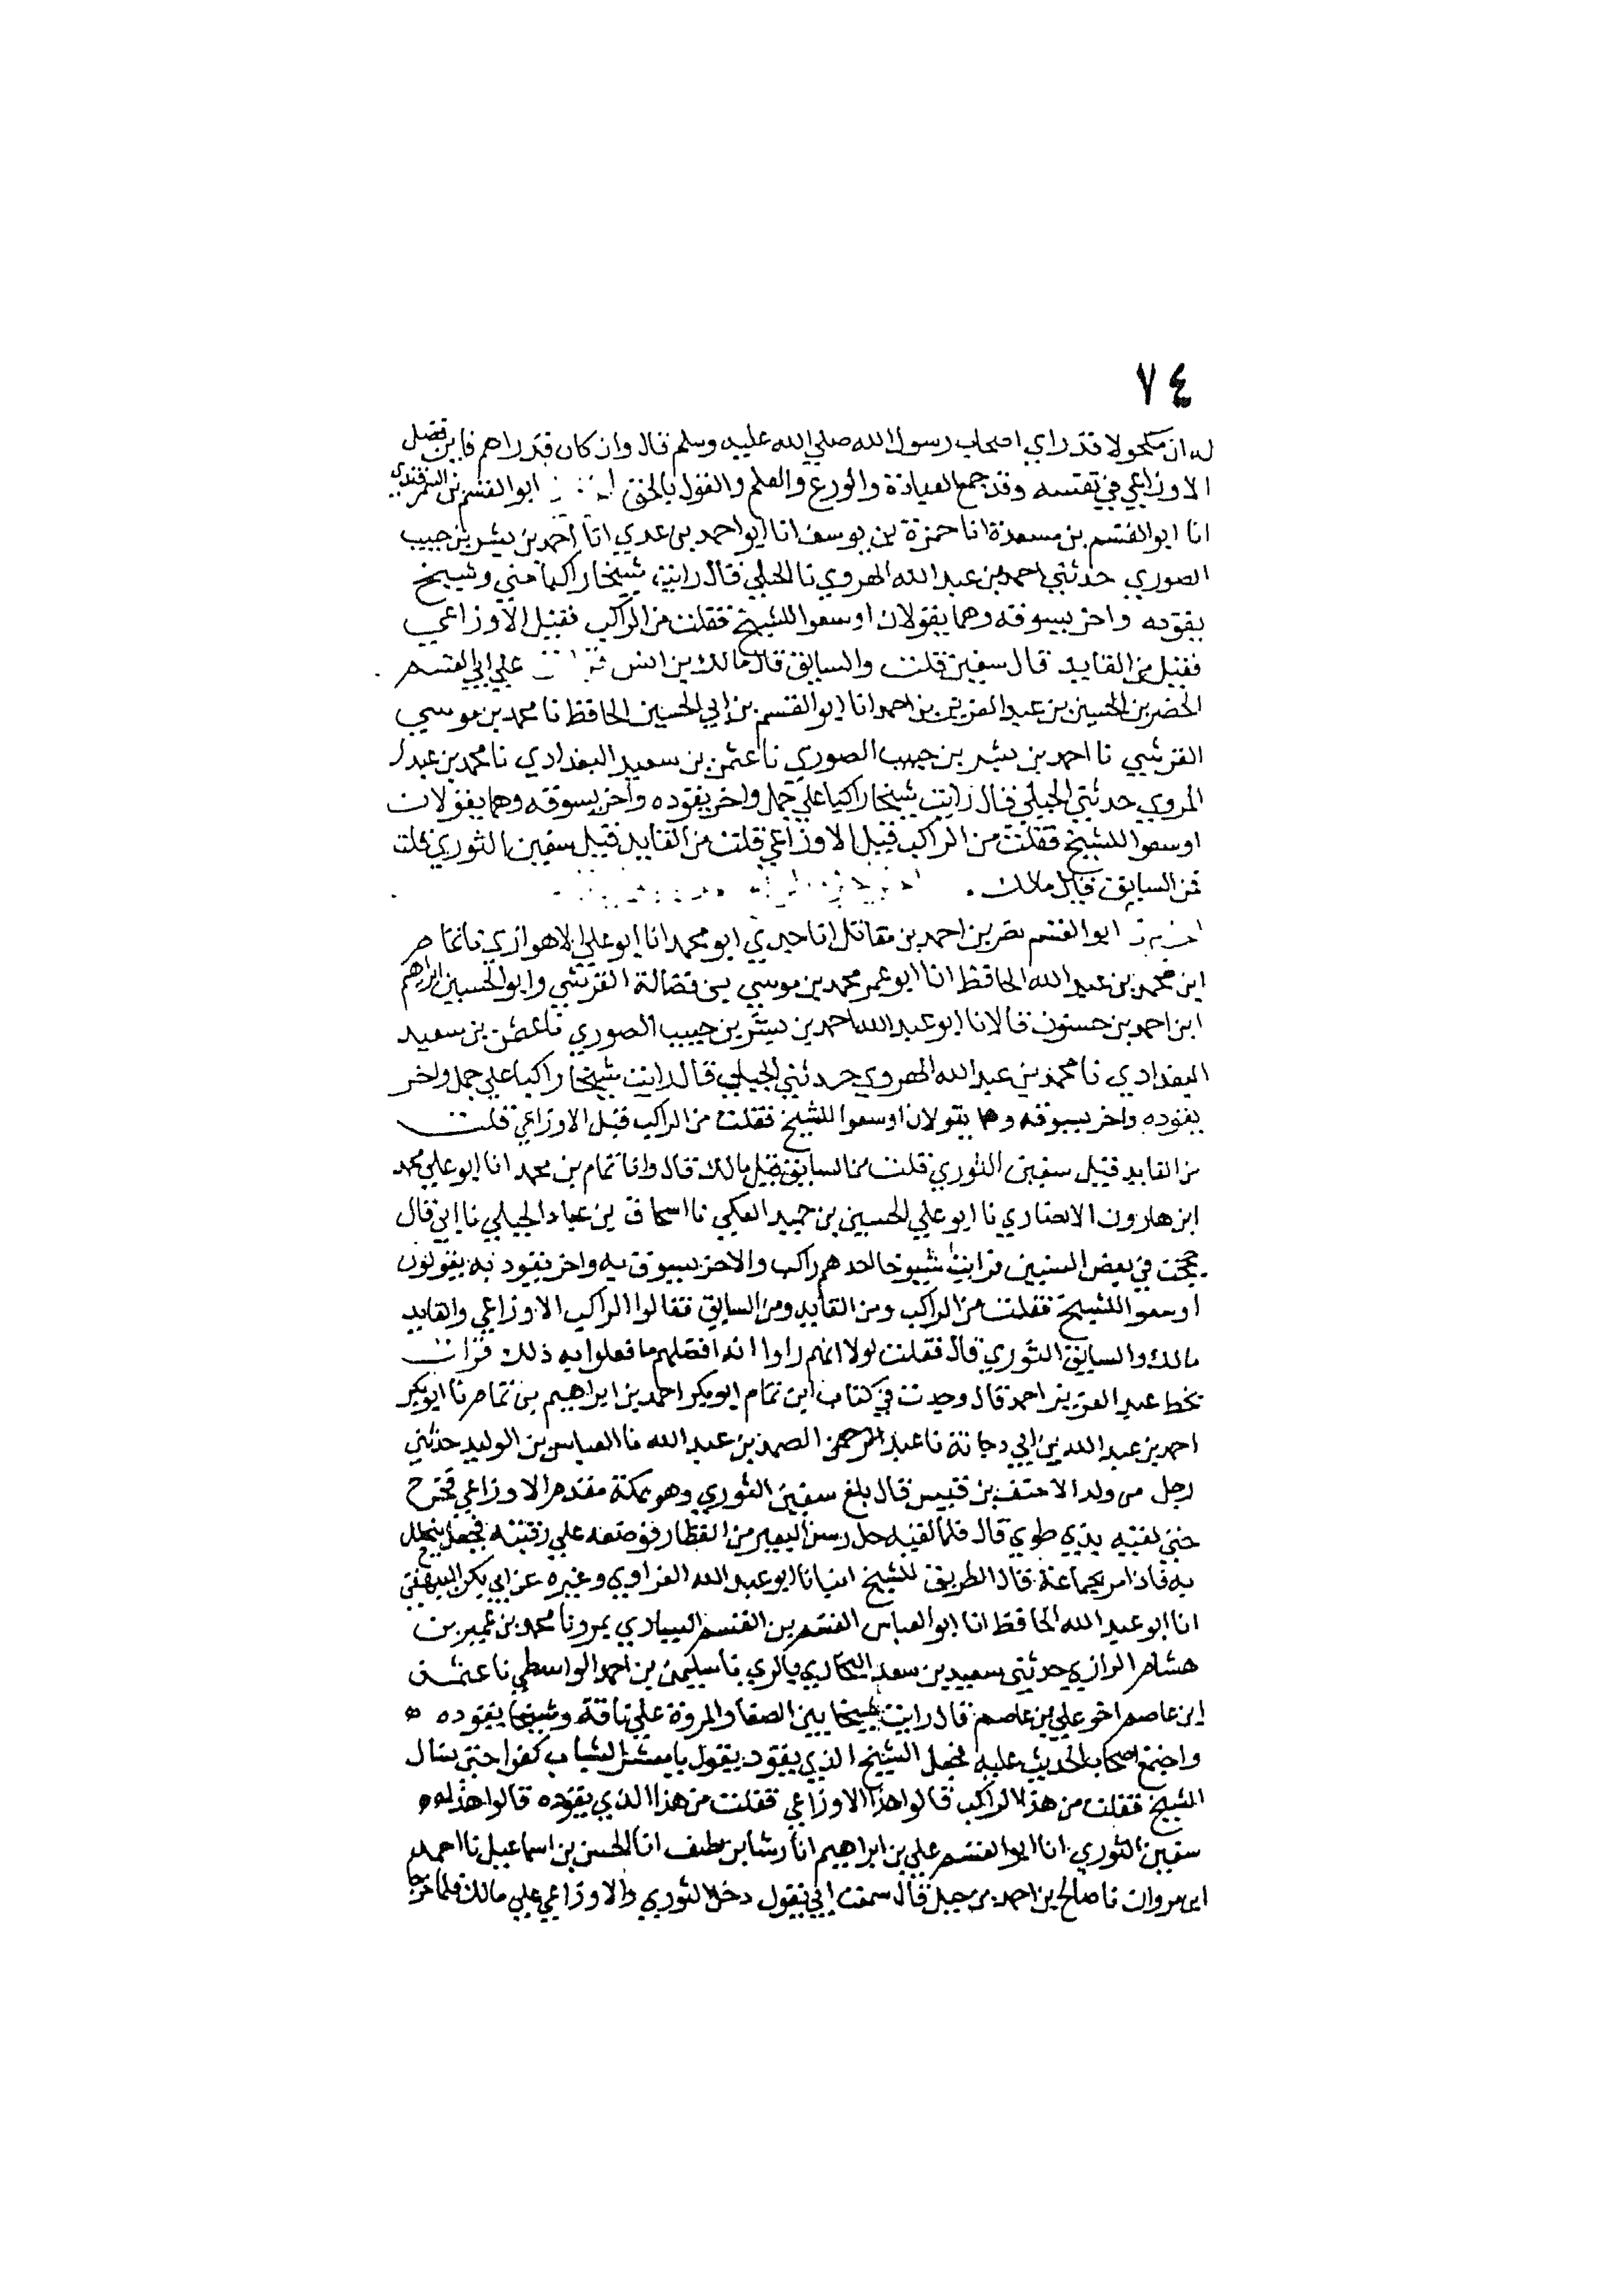 ٧٤
له ان مكحولا قد راي اصحاب رسول الله صلي الله عليه وسلم قال وان كان قد راهم فاين فضل
الاوزاعي في نفسه وقد جمع العبادة والورع والعلم والقول بالحق ابو القسم بن السمرقندي
انا ابو القسم بن مسعدة انا حمزة بن يوسف انا ابو احمد بن عدي انا احمد بن بشر بن حبيب
الصوري حدثني احمد بن عبد الله الهروي نا الجبلي قال رايت شيخا راكبا مني وشيخ
يقوده واخر يسوقه وهما يقولان اوسعوا للشيخ فقلت من الراكب فقيل الاوزاعي
فقيل من القايد قال سفين قلت والسايق قال مالك بن انس علي ابي القسم
الخضر بن الحسين بن عبد العزيز بن احمد انا ابو القسم بن ابي الحسين الحافظ نا محمد بن موسي
القرشي نا احمد بن بشر بن حبيب الصوري نا عثمن بن سعيد البغدادي نا محمد بن عبد
الهروي حدثني الجبلي قال رايت شيخا راكبا علي جمل واخر يقوده واخر يسوقه وهما يقولان
اوسعوا للشيخ فقلت من الراكب قيل الاوزاعي قلت من القايد قيل سفين الثوري قلت
من السايق قيل مالك
ابو القسم نصر بن احمد بن مقاتل انا جدي ابو محمد انا ابو علي الاهوازي نا تمام
ابن محمد بن عبد الله الحافظ انا ابو عمر محمد بن موسي بن فضالة القرشي وابو الحسين ابراهيم
ابن احمد بن حسنون قالا نا ابو عبد الله احمد بن بشر بن حبيب الصوري نا عثمن بن سعيد
البغدادي نا محمد بن عبد الله الهروي حدثني الجبلي قال رايت شيخا راكبا علي جمل واخر
يقوده واخر يسوقه وهما يقولان اوسعوا للشيخ فقلت من الراكب قيل الاوزاعي قلت
من القايد قيل سفين الثوري قلت من السايق قيل مالك قال وانا تمام بن محمد انا ابو علي محمد
ابن هارون الانصاري نا ابو علي الحسين بن حميد العكي نا اسحاق بن عباد الجبلي نا ابي قال
حججت في بعض السنين فرايت شيوخا احدهم راكب والاخر يسوق به واخر يقود به يقولون
اوسعوا للشيخ فقلت من الراكب ومن القايد ومن السايق فقالوا الراكب الاوزاعي والقايد
مالك والسايق الثوري قال فقلت لولا انهم راوا انه افضلهم ما فعلوا به ذلك قرات
بخط عبد العزيز بن احمد قال وجدت في كتاب ابن تمام ابو بكر احمد بن ابراهيم بن تمام نا ابو بكر
احمد بن عبد الله بن ابي دجانة نا عبد الرحمن الصمد بن عبد الله نا العباس بن الوليد حدثني
رجل من ولد الاحنف بن قيس قال بلغ سفين الثوري وهو بمكة مقدم الاوزاعي فخرج
حتي لقيه بذي طوي قال فلما لقيه حل رسن البعير من القطار فوضعه علي رقبته فجعل يتخلل
به فاذا مر بجماعة قال الطريق للشيخ انبانا ابو عبد الله الفراوي وغيره عن ابي بكر البيهقي
انا ابو عبد الله الحافظ انا ابو العباس القسم بن القسم السياري بمرو نا محمد بن عمير بن
هشام الرازي حدثني سعيد بن سعد البخاري بالري نا سليمن بن احمد الواسطي نا عثمن
ابن عاصم اخو علي بن عاصم قال رايت شيخا بين الصفا والمروة علي ناقة وشيخا يقوده
واجتمع اصحاب الحديث عليه فجعل الشيخ الذي يقود يقول يا معشر الشباب كفوا حتي نسال
الشيخ فقلت من هذا الراكب قالوا هذا الاوزاعي فقلت من هذا الذي يقوده قالوا هذا
سفين الثوري انا ابو القسم علي بن ابراهيم انا رشا بن نظيف انا الحسن بن اسماعيل نا احمد
ابن مروان نا صالح بن احمد بن حنبل قال سمعت ابي يقول دخل الثوري والاوزاعي علي مالك فلما خرجا